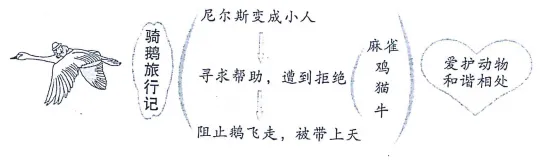 骑鹅旅行记
尼尔斯变成小人
寻求帮助，遭到拒绝
阻止鹅飞走，被带上天
麻雀
鸡
猫
牛
爱护动物
和谐相处